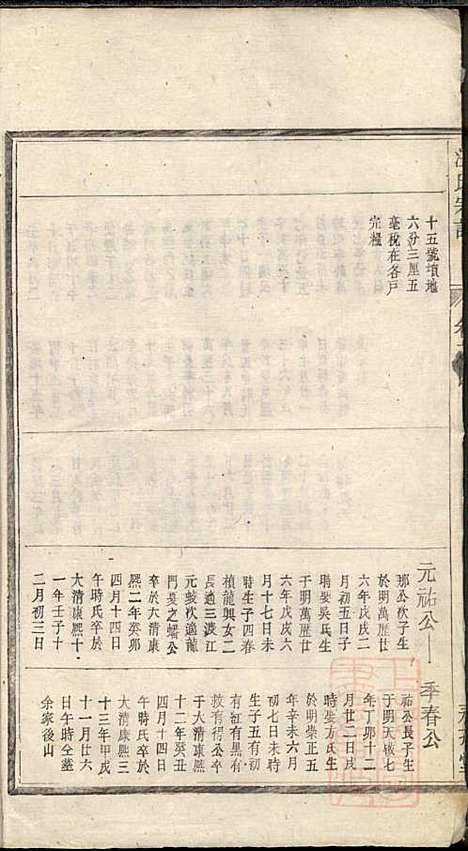 十五號墳地
六分三厘五
毫稅在各戶
完糧
元祐公
那公次子生
於明萬歷廿
六年戊戌二
月初五日子
時娶吳氏生
于明萬歷廿
六年戊戌六
月十七日未
時生子四春
楨龍興女二
長適三渡江
元
次適龍
門
之蟠公
卒於大清康
熙二年癸卯
四月十四日
午時氏卒於
大清康熙十
一年壬子十
二月初三日
季春公
祐公長子生
于明天啟七
年丁卯十二
月廿二日戌
時娶方氏生
於明崇正五
年辛未六月
初七日未時
生子五有初
有江有黑有
敦有得公卒
于大清康熙
十二年癸丑
四月十四日
午時氏卒於
大清康熙三
十三年甲戌
十一月廿六
日午時仝塟
余家後山